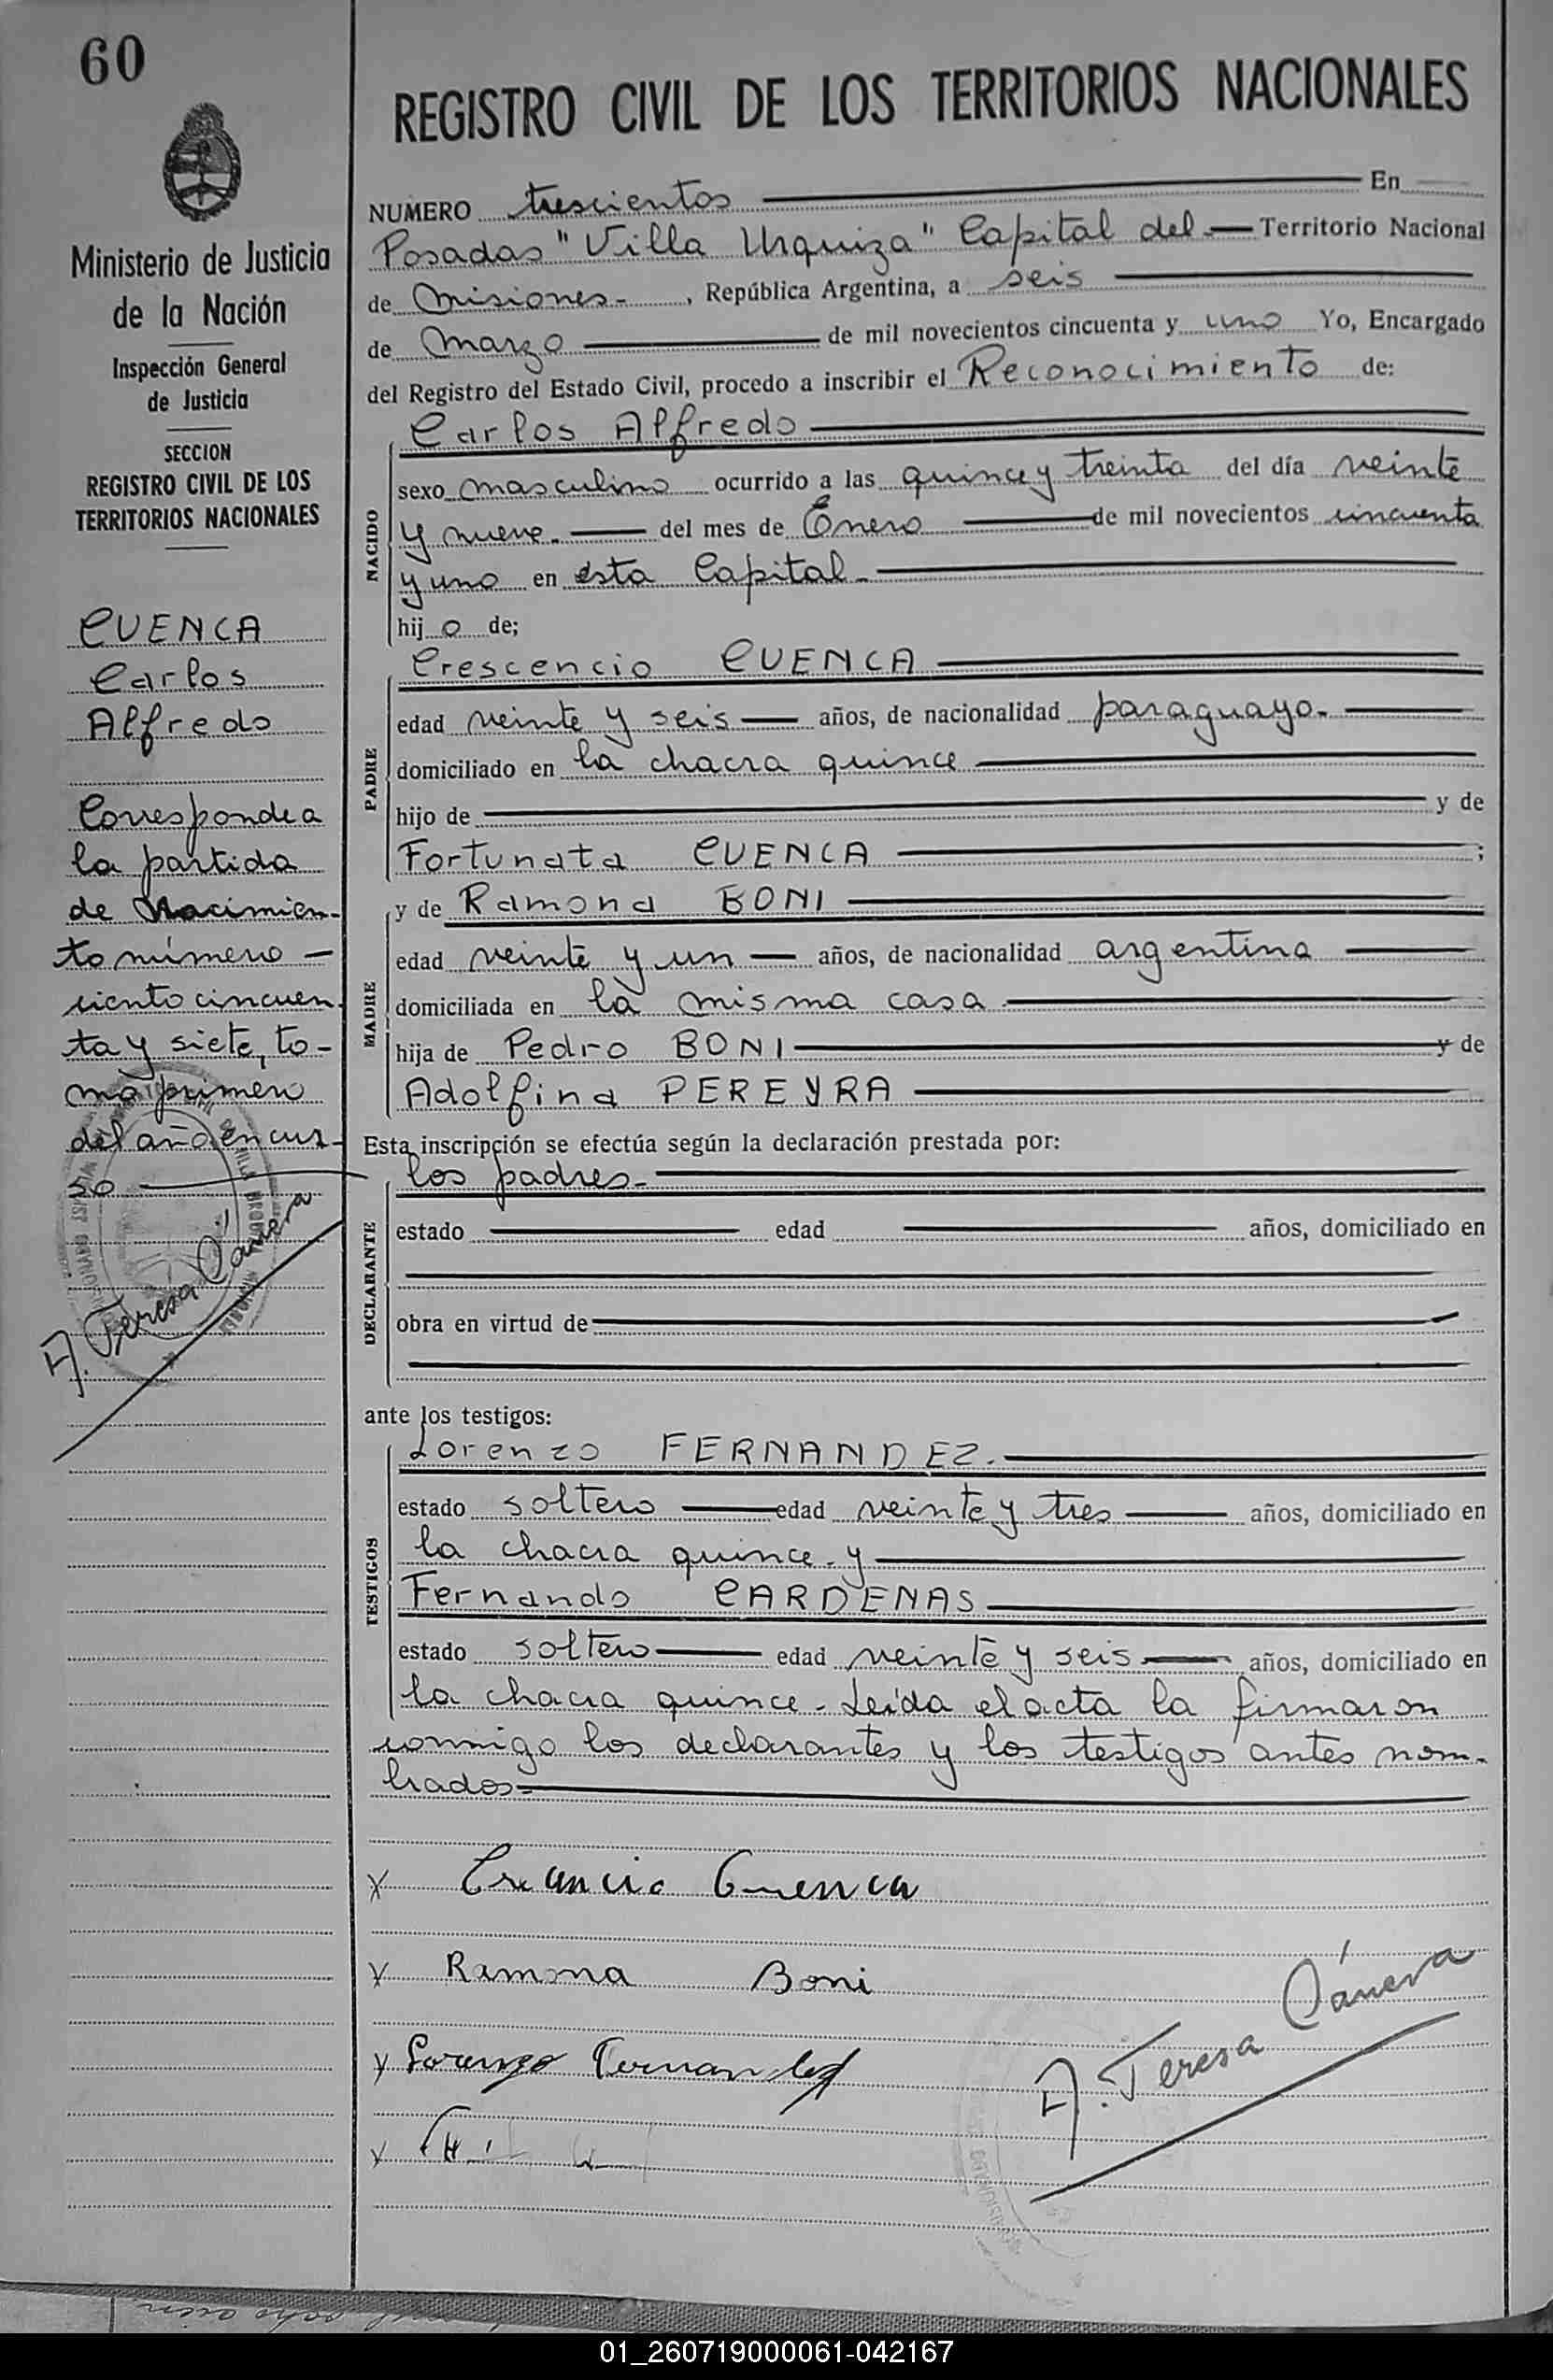 60
REGISTRO CIVIL DE LOS TERRITORIOS NACIONALES
Ministerio de Justicia
de la Nación
Inspección General
de Justicia
SECCION
REGISTRO CIVIL DE LOS
TERRITORIOS NACIONALES
CUENCA
Carlos
Alfredo
Corresponde a
la partida
de Nacimien-
to número
ciento cincuen-
ta y siete, to-
mo primero
del año en cur-
so
A. Teresa Cánera
NUMERO trescientos En
Posadas "Villa Urquiza" Capital del Territorio Nacional
de Misiones-, República Argentina, a seis
de marzo de mil novecientos cincuenta y uno Yo, Encargado
del Registro del Estado Civil, procedo a inscribir el Reconocimiento de:
NACIDO
Carlos Alfredo
sexo masculino ocurrido a las quince y treinta del día veinte
y nueve. del mes de Enero de mil novecientos cincuenta
y uno en esta Capital-
hijo de;
PADRE
Crescencio CUENCA
edad veinte y seis años, de nacionalidad paraguayo.
domiciliado en la chacra quince
hijo de y de
Fortunata CUENCA ;
MADRE
y de Ramona BONI
edad veinte y un años, de nacionalidad argentina
domiciliada en la misma casa
hija de Pedro BONI y de
Adolfina PEREYRA
Esta inscripción se efectúa según la declaración prestada por:
DECLARANTE
los padres-
estado edad años, domiciliado en
obra en virtud de
ante los testigos:
TESTIGOS
Lorenzo FERNANDEZ.
estado soltero edad veinte y tres años, domiciliado en
la chacra quince. y
Fernando CARDENAS
estado soltero edad veinte y seis años, domiciliado en
la chacra quince. Leída el acta la firmaron
conmigo los declarantes y los testigos antes nom-
brados=
x Cuenca
x Ramona Boni
x Lorenzo Fernandez
x
A. Teresa Cánera
01_260719000061-042167